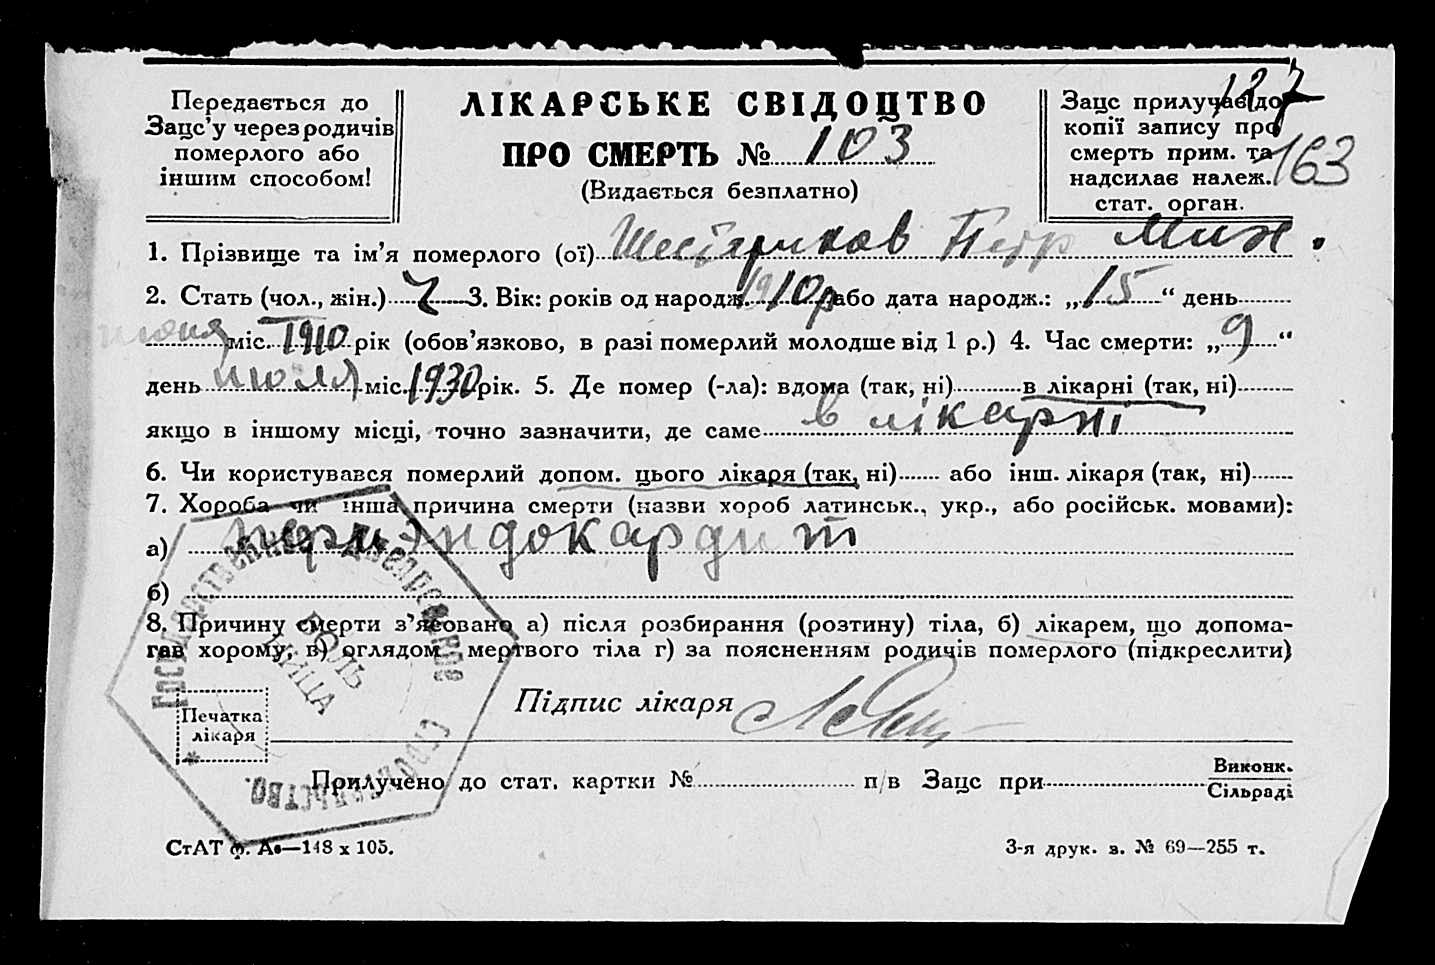 Передається до
Зацс'у через родичів
померлого або
іншим способом!
ЛІКАРСЬКЕ СВІДОЦТВО
ПРО СМЕРТЬ № 103
(Видається безплатно)
127
Зацс прилучає до
копії запису про
смерть прим. та
надсилає належ.
стат. орган.
163
1. Прізвище та ім'я померлого (ої) Шестериков Петр Мих.
2. Стать (чол., жін.) ч 3. Вік: років од народж. 1910 р або дата народж.: „15“ день
июня міс. 1910 рік (обов'язково, в разі померлий молодше від 1 р.) 4. Час смерти: „9“
день июля міс. 1930 рік. 5. Де помер (-ла): вдома (так, ні) в лікарні (так, ні)
якщо в іншому місці, точно зазначити, де саме в лікарні
6. Чи користувався померлий допом. цього лікаря (так, ні) або інш. лікаря (так, ні)
7. Хороба чи інша причина смерти (назви хороб латинськ., укр., або російськ. мовами):
а) ендокардит
б)
8. Причину смерти з'ясовано а) після розбирання (розтину) тіла, б) лікарем, що допома-
гав хорому, в) оглядом мертвого тіла г) за поясненням родичів померлого (підкреслити)
Государственное Днепровское
БОЛЬ
НИЦА
Строительство.
Печатка
лікаря
Підпис лікаря
Прилучено до стат. картки № п/в Зацс при Виконк.
Сільраді
СтАТ ф. А—148 x 105.
3-я друк. з. № 69—255 т.